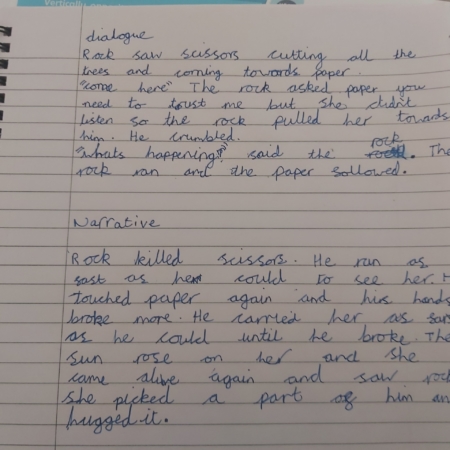 Vertically
dialogue
Rock saw scissors cutting all the
trees and coming towards paper.
"come here" The rock asked paper you
need to trust me but she didn't
listen so the rock pulled her towards
him. He crumbled.
"whats happening?!" said the rock. The
rock ran and the paper sollowed.
Narrative
Rock killed scissors. He ran as
sast as he could to see her. H
touched paper again and his hands
broke more. He carried her as sar
as he could until he broke. The
sun rose on her and she
came alive again and saw rock
she picked a part os him an
hugged it.